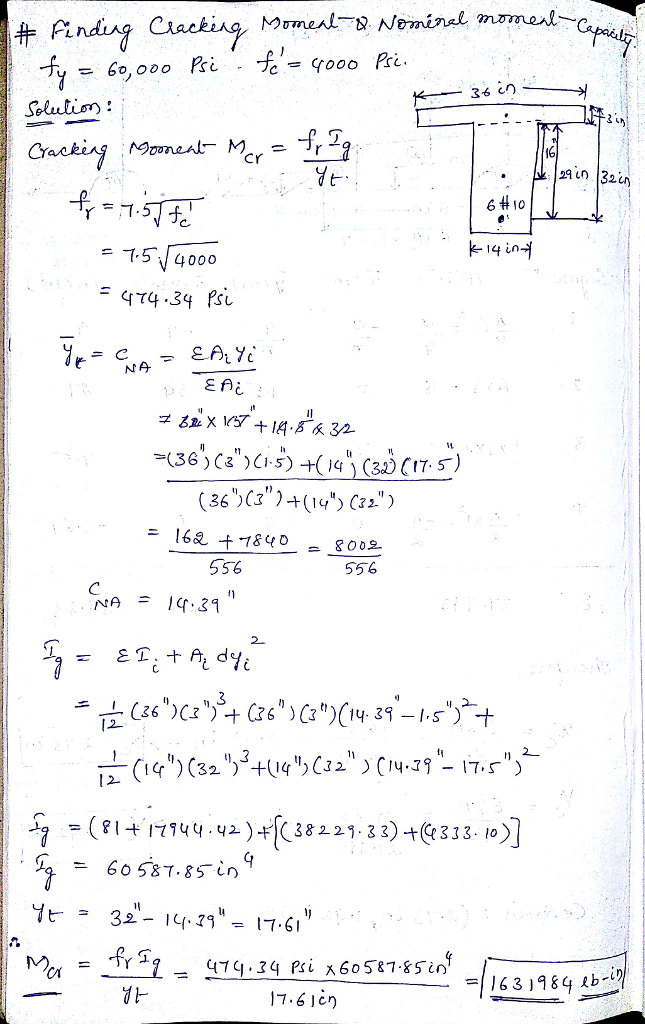 # Finding Cracking Moment & Nominal moment Capacity.
fy = 60,000 Psi - fc' = 4000 Psi.
Solution:
Cracking Moment Mcr = fr Ig / yt.
36 in
3 in
16"
29 in
32 in
6 # 10
14 in
fr = 7.5 √fc'
= 7.5 √4000
= 474.34 Psi
ȳt = C NA = ΣAi yi / ΣAi
= (36")(3")(1.5) + (14")(32)(17.5") / (36")(3") + (14")(32")
= 162 + 7840 / 556 = 8002 / 556
C NA = 14.39"
Ig = ΣIi + Ai dyi²
= 1/12 (36")(3")³ + (36")(3")(14.39" - 1.5")² +
1/12 (14")(32")³ + (14")(32")(14.39" - 17.5")²
Ig = (81 + 17944.42) + [(38229.33) + (4333.10)]
Ig = 60587.85 in⁴
yt = 32" - 14.39" = 17.61"
Mcr = fr Ig / yt = 474.34 Psi x 60587.85 in⁴ / 17.61 in = 1631984 lb-in